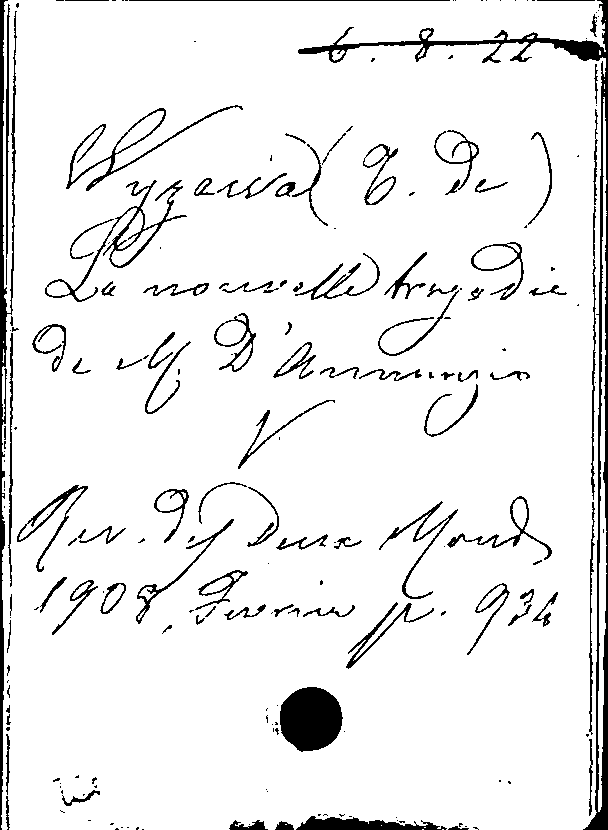 6. 8. 22
Wyzewa (T. de)
La nouvelle tragedie
de M. D'Annunzio
V
Rev. des Deux Mond
1908, Fevrier p. 934